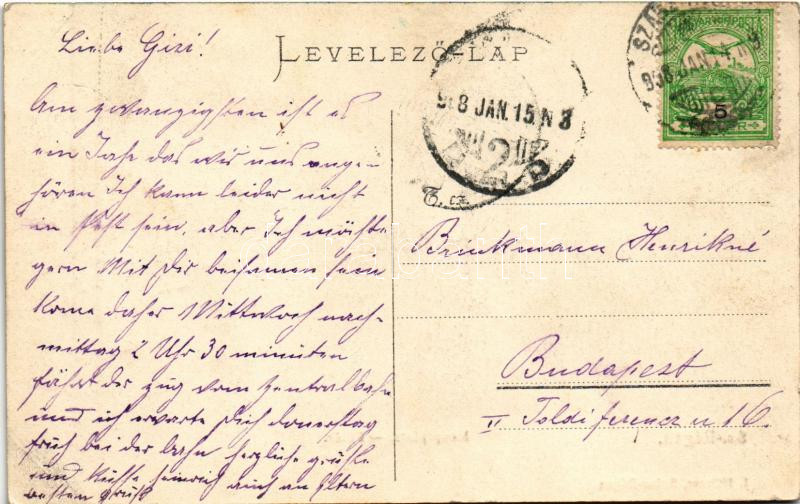 Liebe Gizi!
LEVELEZŐ-LAP
Am zwanzigsten ist es
ein Jahr das wir uns ange-
hören Ich kann leider nicht
in Pest sein, aber Ich möchte
gern Mit Dir beisamen sein
kome daher Mittwoch nach-
mittag 2 Uhr 30 minuten
fährt der zug vom Zentralbahn
und ich erwarte Dich Donerstag
früh bei der bahn herzliche grüße
und Küsse Heinrich auch an Eltern
besten Gruß
908 JAN. 15. N 3
MAGYAR KIR. POSTA
5
908 JAN.
T. cz.
Brinkmann Henrikné
Budapest
II Toldi ferencz u 16.